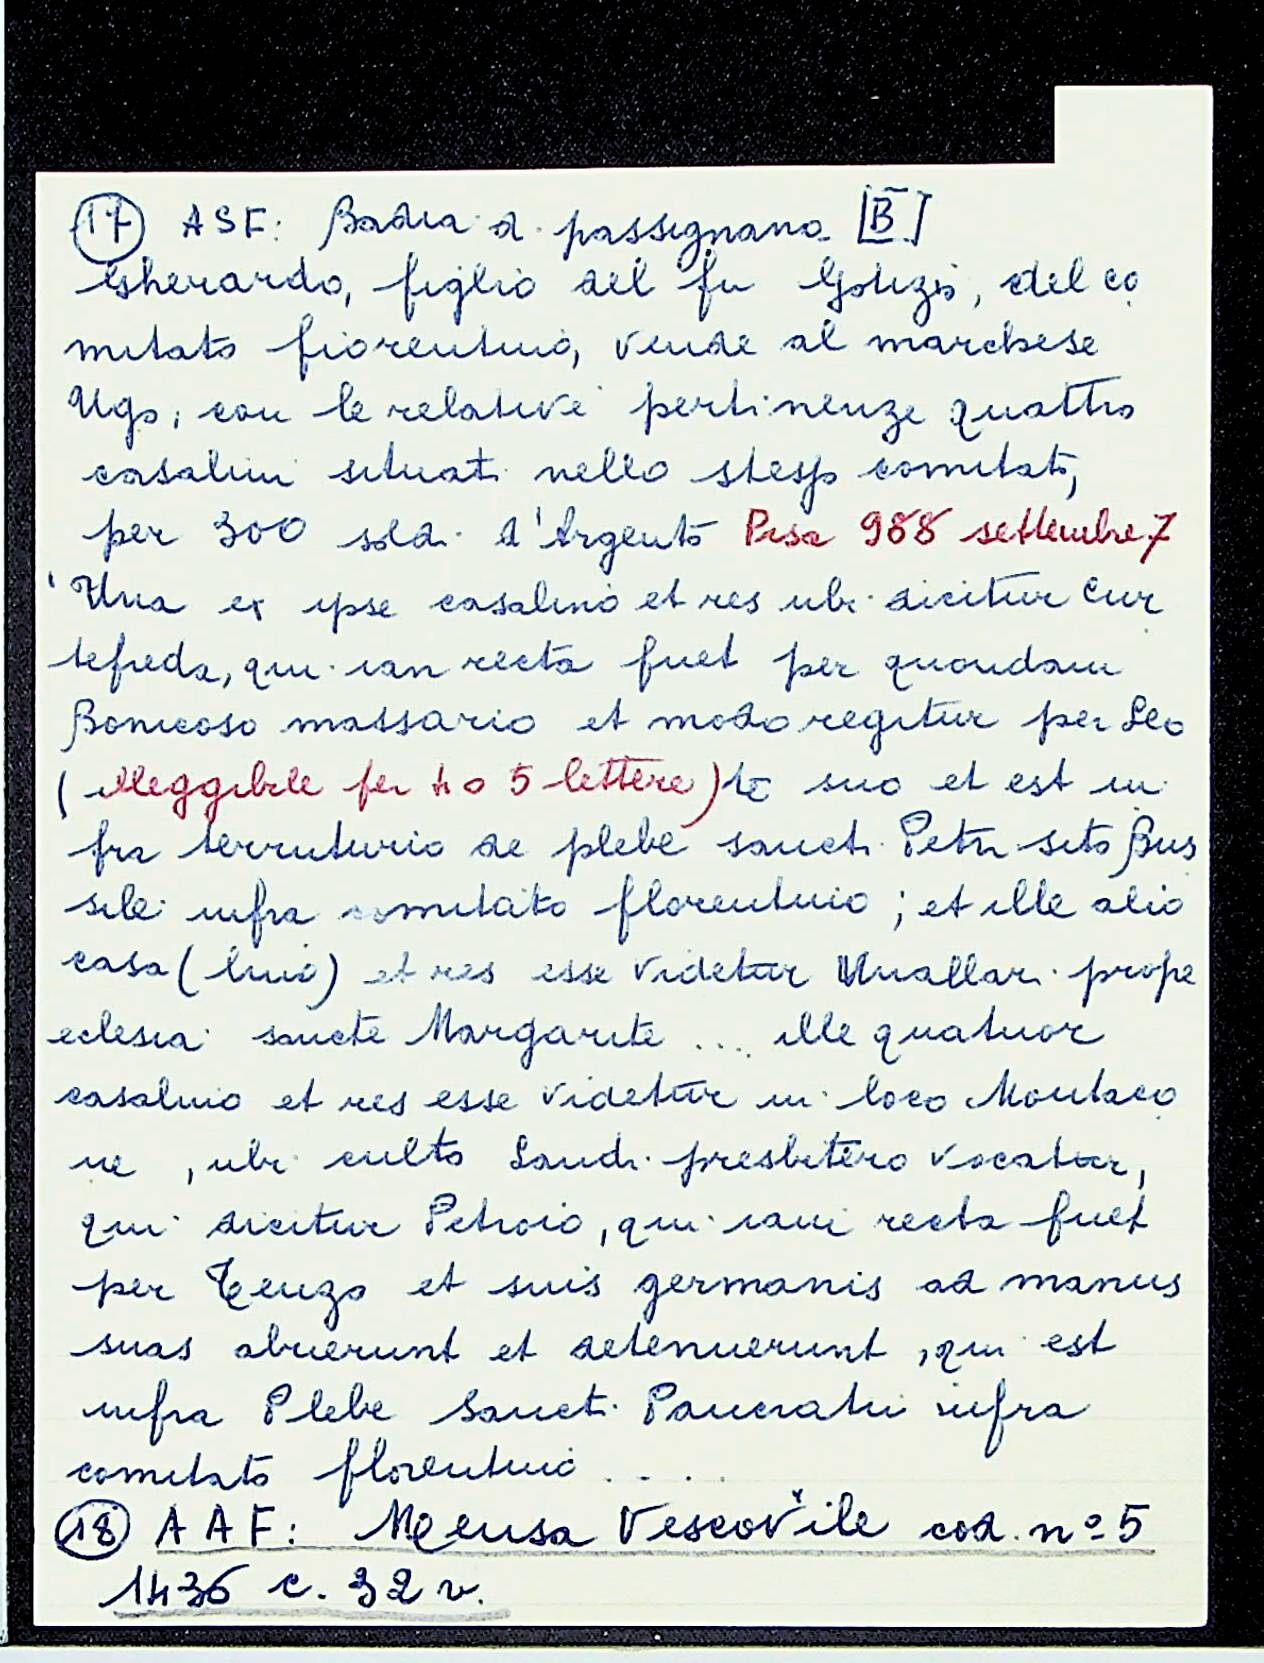 17 ASF: Badia di passignano [B]
Gherardo, figlio del fu Gotizio, del co
mitato fiorentino, vende al marchese
Ugo, con le relative pertinenze quattro
casalini situati nello stesso comitato,
per 300 soldi d'Argento Pisa 988 settembre 7
'Una ex ipse casalino et res ubi dicitur Cur
tefreda, qui ian recta fuet per quondam
Bonicoso massario et modo regitur per Leo
(illeggibile per 4 o 5 lettere) te suo et est in
fra territurio de plebe sancti Petri sito Bus
sile infra comitato florentino; et ille alio
casa(lino) et res esse videtur Uuallari prope
eclesia sancte Margarite ... ille quatuor
casalino et res esse videtur in loco Montaco
ne, ubi culto Landi presbitero vocatur,
qui dicitur Petroio, qui iam recta fuet
per Teuzo et suis germanis ad manus
suas abuerunt et detenuerunt, qui est
infra Plebe Sancti Pancratii infra
comitato florentino ....
18 AAF: Mensa Vescovile cod. nº 5
1436 c. 32 v.